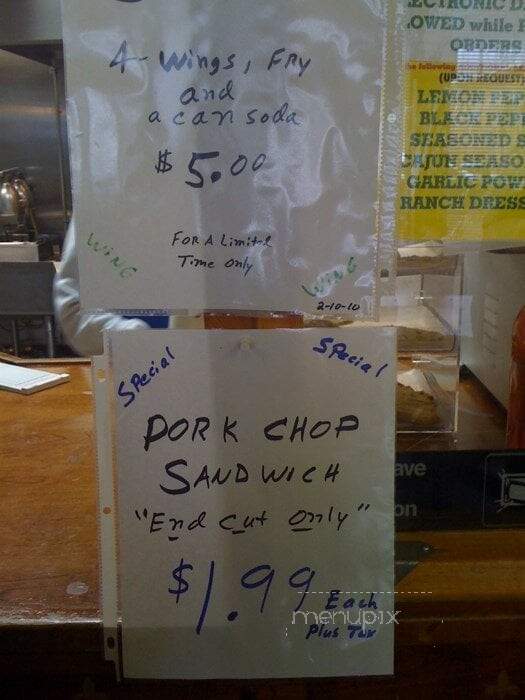 4-Wings, Fry
and
a can soda
$ 5.00
For A Limited
Time only
WING
WING
2-10-10
ECTRONIC D
OWED while
ORDERS
he following
(UPON REQUEST
LEMON PEP
BLACK PEPP
SEASONED S
CAJUN SEASO
GARLIC POW
RANCH DRESS
Special
Special
PORK CHOP
SANDWICH
"End cut only"
$1.99 Each
Plus Tax
menupix
ave
on